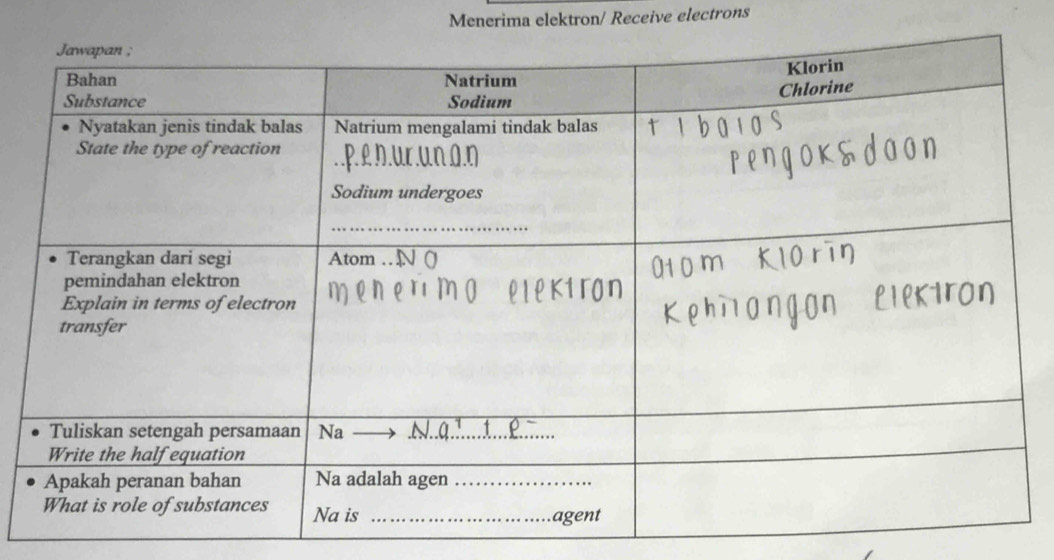 Menerima elektron/ Receive electrons
Jawapan ;
Bahan
Substance
Natrium
Sodium
Klorin
Chlorine
• Nyatakan jenis tindak balas
State the type of reaction
Natrium mengalami tindak balas
..penurunan
Sodium undergoes
..............................
t ibalas
pengoksidaan
• Terangkan dari segi
pemindahan elektron
Explain in terms of electron
transfer
Atom ..Na
menerima elektron
atom klorin
kehilangan elektron
• Tuliskan setengah persamaan
Write the half equation
Na ⟶ Na⁺ + e⁻
• Apakah peranan bahan
What is role of substances
Na adalah agen .....................
Na is ..............................agent